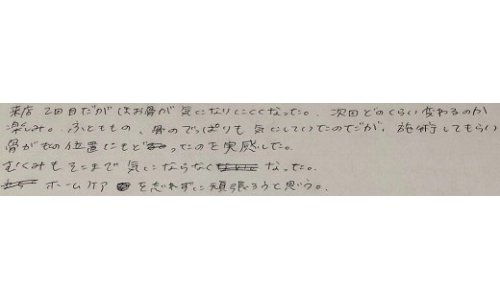 来店 2回目だがほお骨が気になりにくくなった。次回どのくらい変わるのか
楽しみ。ふとももの、骨のでっぱりも気にしていたのだが、施術してもらい
骨が元の位置にもどったのを実感した。
むくみもそこまで気にならなくなった。
ホームケアを忘れずに頑張ろうと思う。